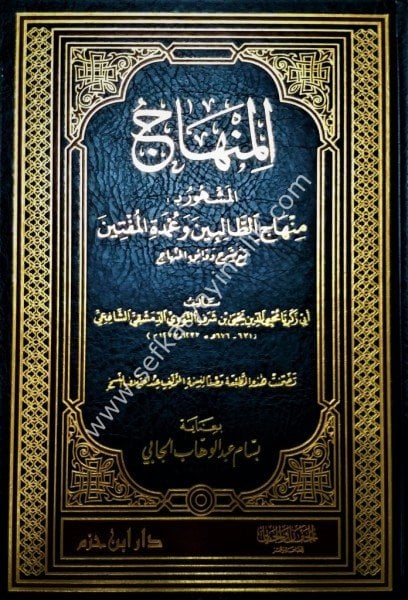 المنهاج
المشهور بـ
منهاج الطالبين وعمدة المفتين
مع شرح دقائق المنهاج
تأليف
أبي زكريا محيي الدين يحيى بن شرف النووي الدمشقي الشافعي
(٦٣١ - ٦٧٦ هـ = ١٢٣٣ - ١٢٧٧ م)
بعناية
بسام عبد الوهاب الجابي
دار ابن حزم